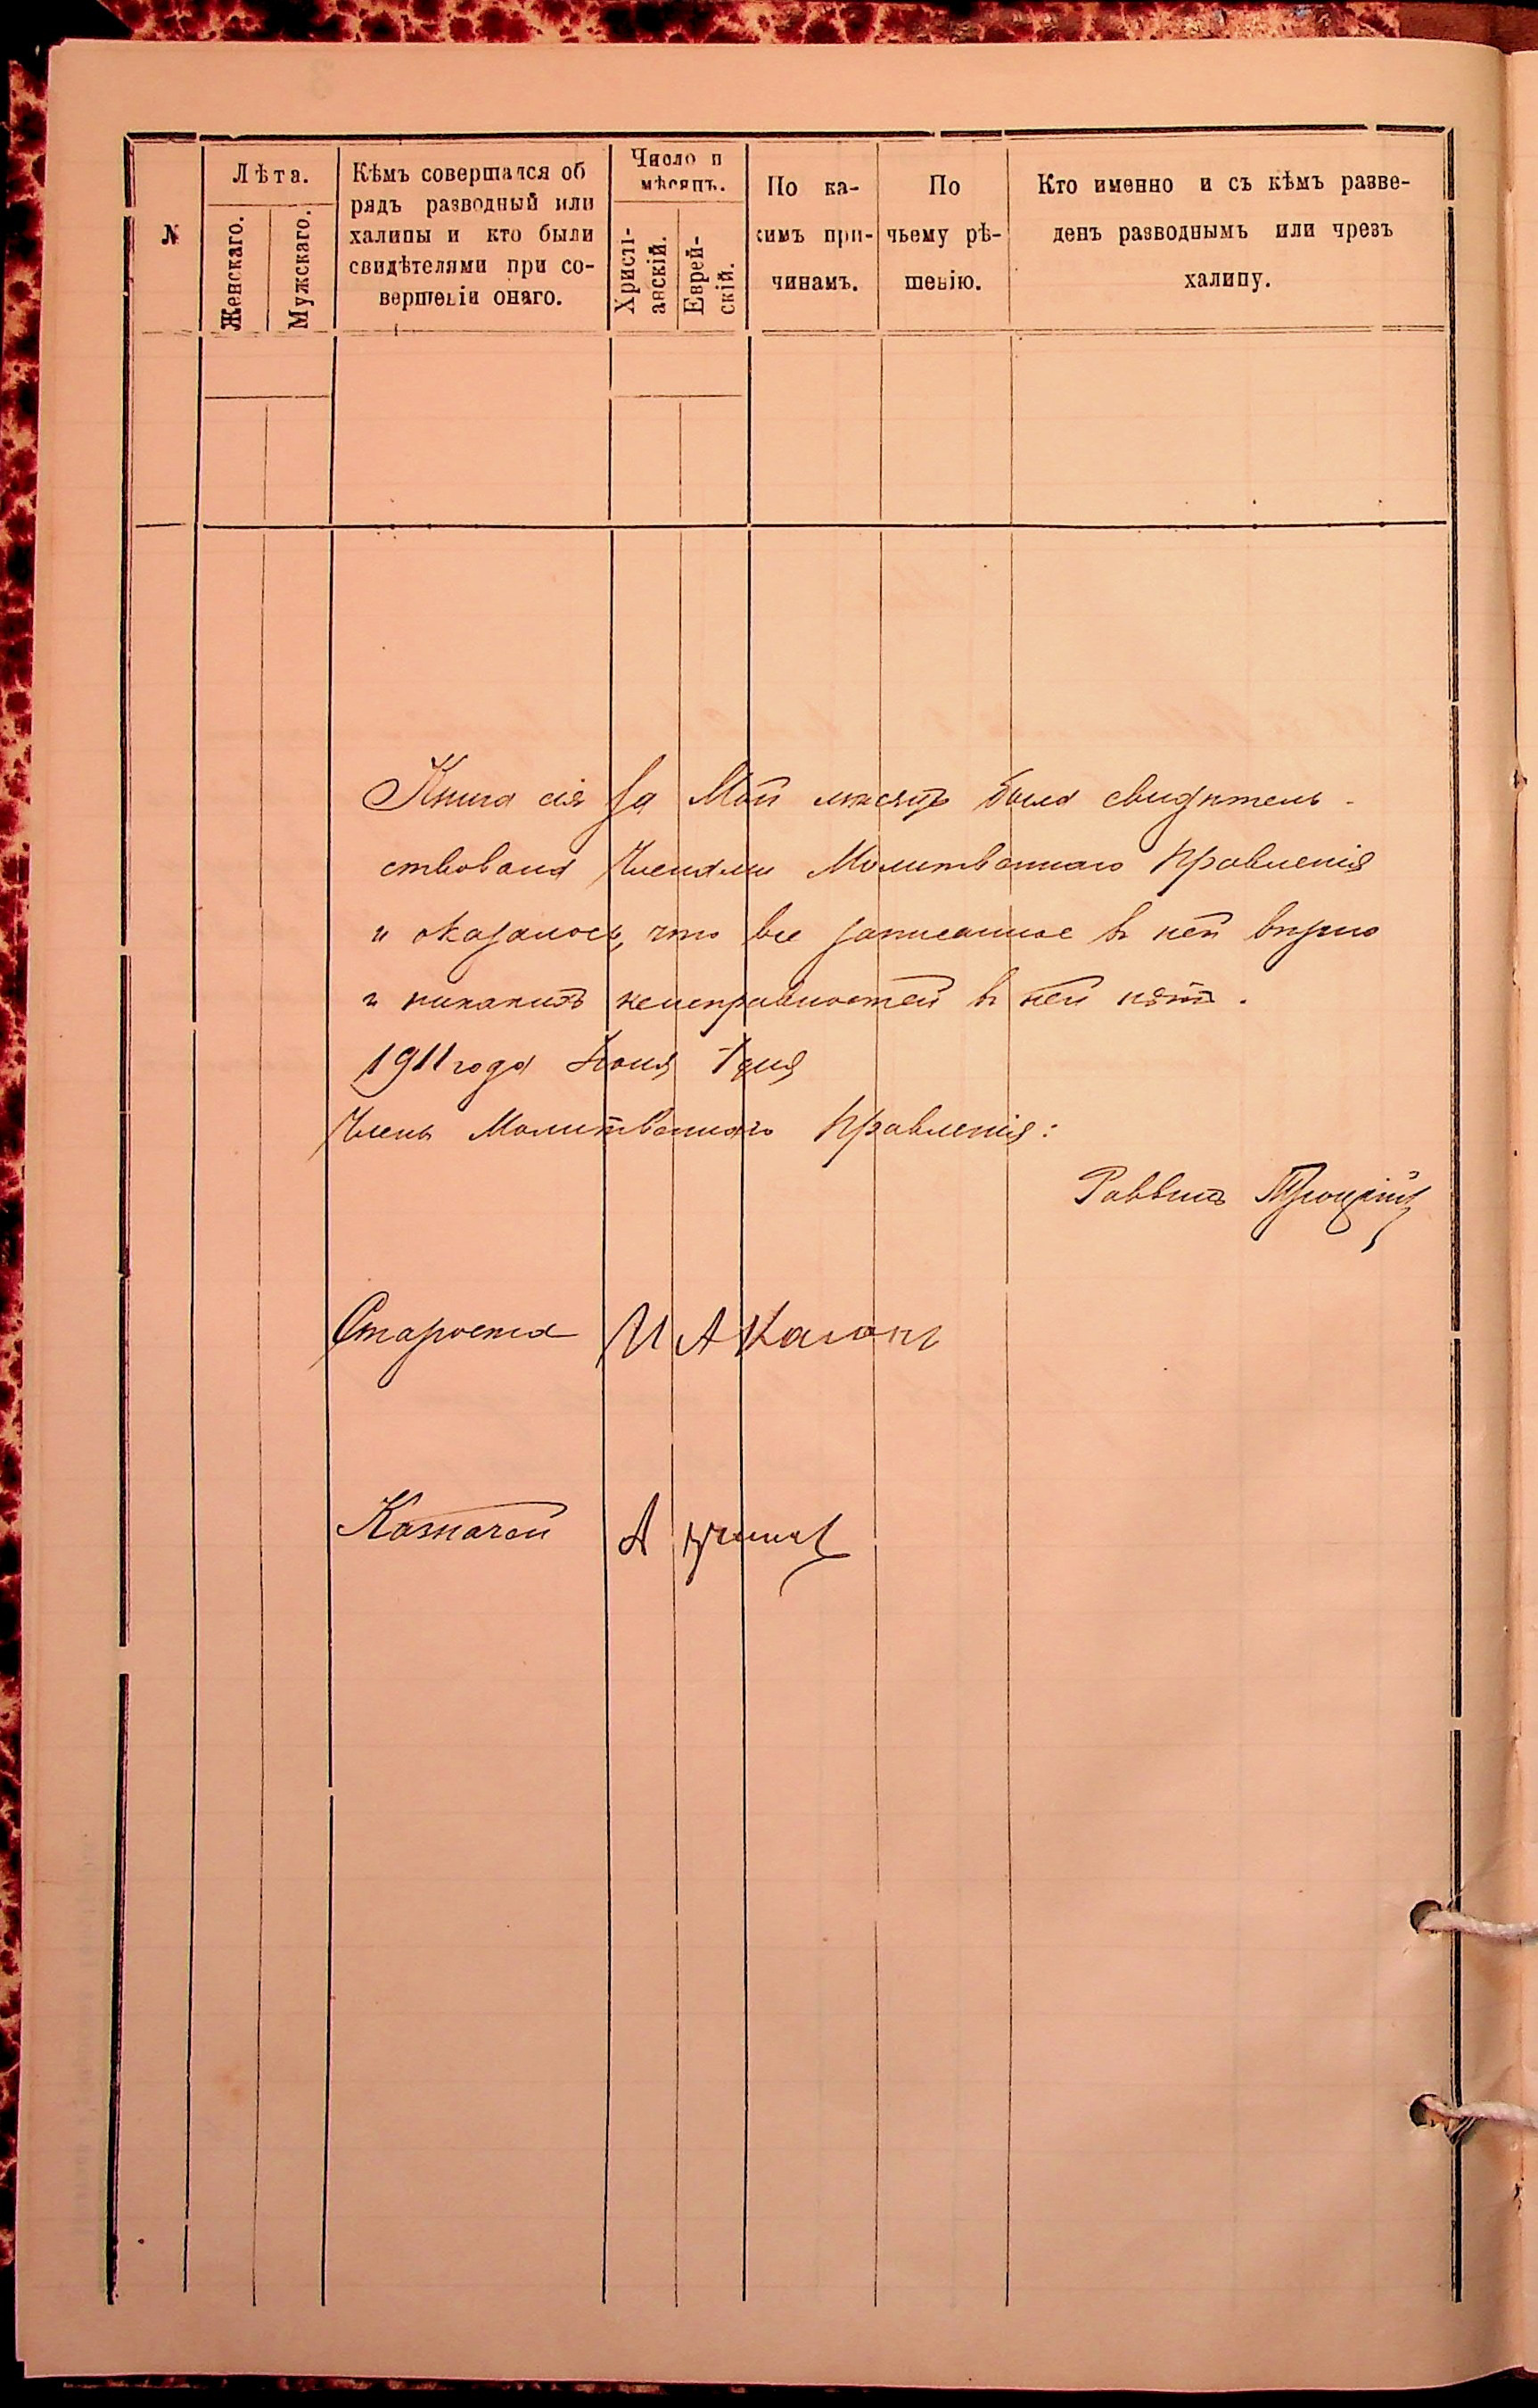 №
Лѣта.
Женскаго.
Мужскаго.
Кѣмъ совершался об
рядъ разводный или
халицы и кто были
свидѣтелями при со-
вершеніи онаго.
Число и
мѣсяцъ.
Христі-
анскій.
Еврей-
скій.
По ка-
кимъ при-
чинамъ.
По
чьему рѣ-
шенію.
Кто именно и съ кѣмъ разве-
денъ разводнымъ или чрезъ
халицу.
Книга сія за Май мѣсяцъ была свидѣтель-
ствована Членами Молитвеннаго Правленія
и оказалось, что все записанное въ ней вѣрно
и никакихъ неисправностей въ ней нѣтъ.
1911 года Іюня 1 дня
Члены Молитвеннаго Правленія:
Раввинъ Троцкій
Староста И А Каганъ
Казначей А